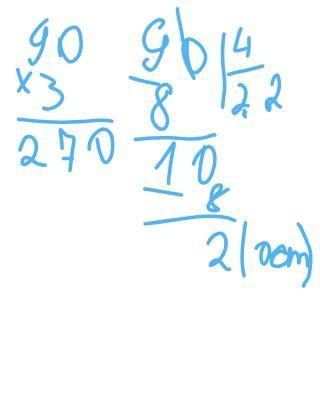 90
×3
270
90 4
-8 2 2
10
-8
2 (ост)